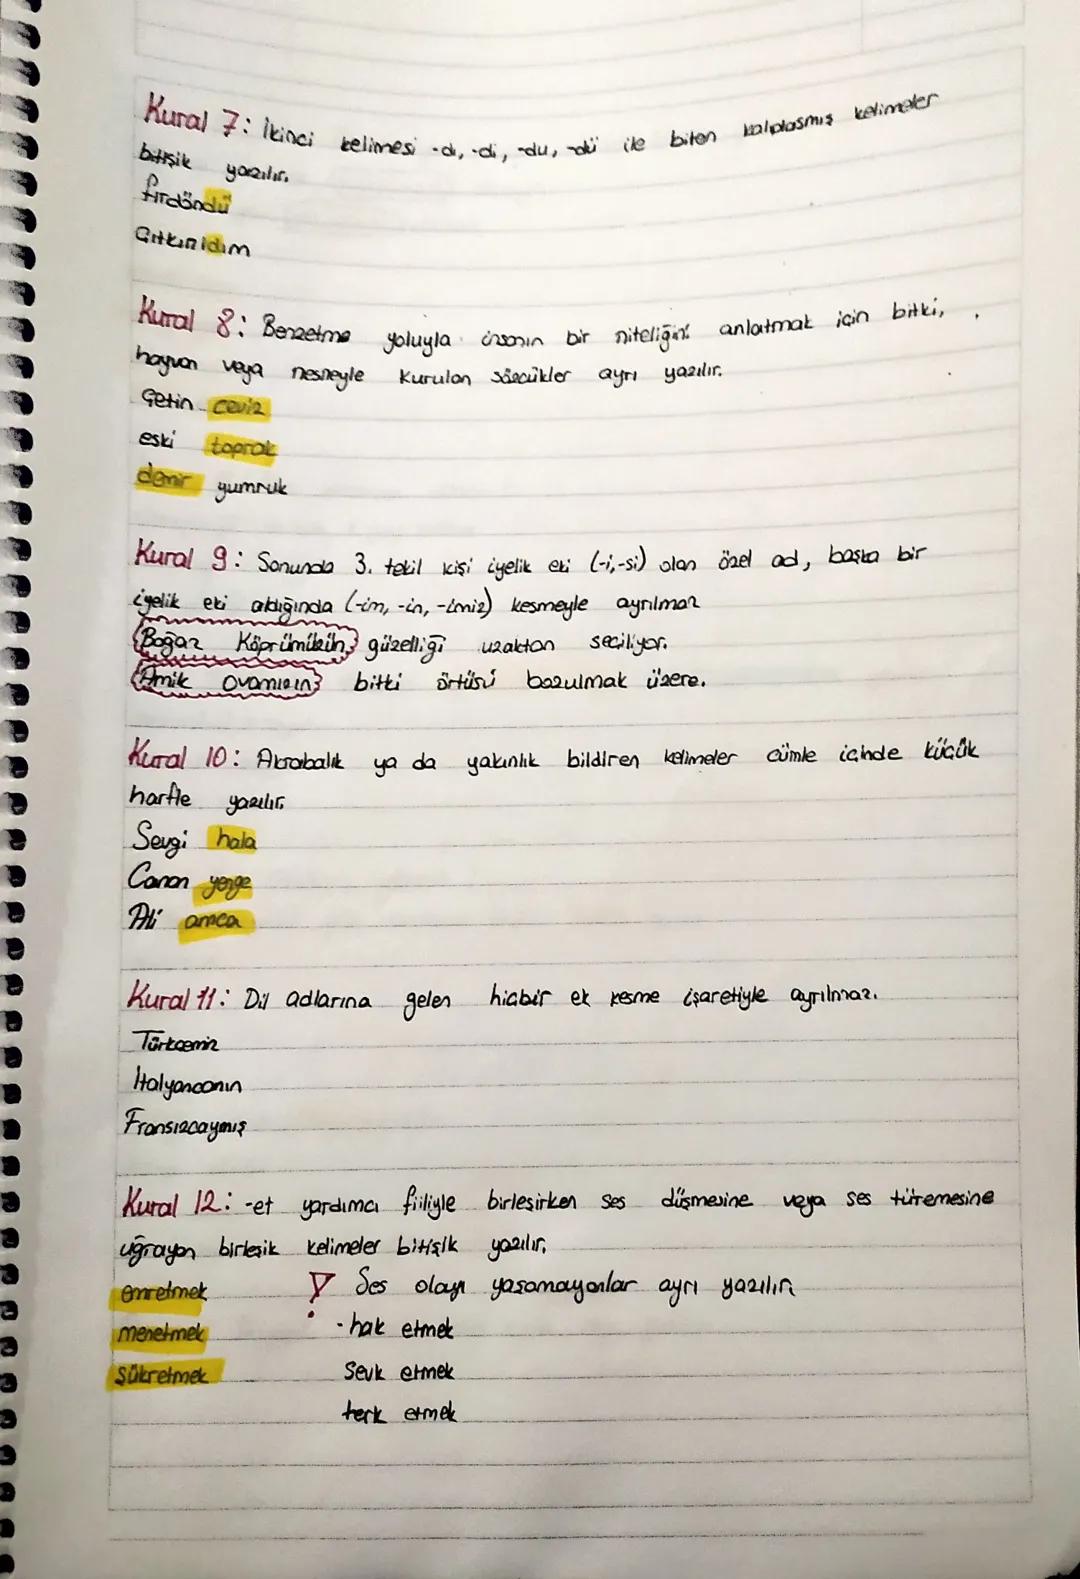 Kural 7: İkinci kelimesi -dı, -di, -du, -dü ile biten kalıplaşmış kelimeler
bitişik yazılır.
fırdöndü
Çıtkırıldım
Kural 8: Benzetme yoluyla insanın bir niteliğini anlatmak için bitki,
hayvan veya nesneyle kurulan sözcükler ayrı yazılır.
Çetin ceviz
eski toprak
demir yumruk
Kural 9: Sonunda 3. tekil kişi iyelik eki (-i,-si) olan özel ad, başka bir
iyelik eki aldığında (-im, -in, -imiz) kesmeyle ayrılmaz
Boğaz Köprümüzün güzelliği uzaktan seçiliyor.
Amik ovamızın bitki örtüsü bozulmak üzere.
Kural 10: Akrabalık ya da yakınlık bildiren kelimeler cümle içinde küçük
harfle yazılır.
Sevgi hala
Canan yenge
Ali amca
Kural 11: Dil adlarına gelen hiçbir ek kesme işaretiyle ayrılmaz.
Türkçemiz
İtalyancanın
Fransızcaymış
Kural 12: -et yardımcı fiiliyle birleşirken ses düşmesine veya ses türemesine
uğrayan birleşik kelimeler bitişik yazılır.
emretmek
! Ses olayı yaşamayanlar ayrı yazılır
menetmek
- hak etmek
şükretmek
Sevk etmek
terk etmek